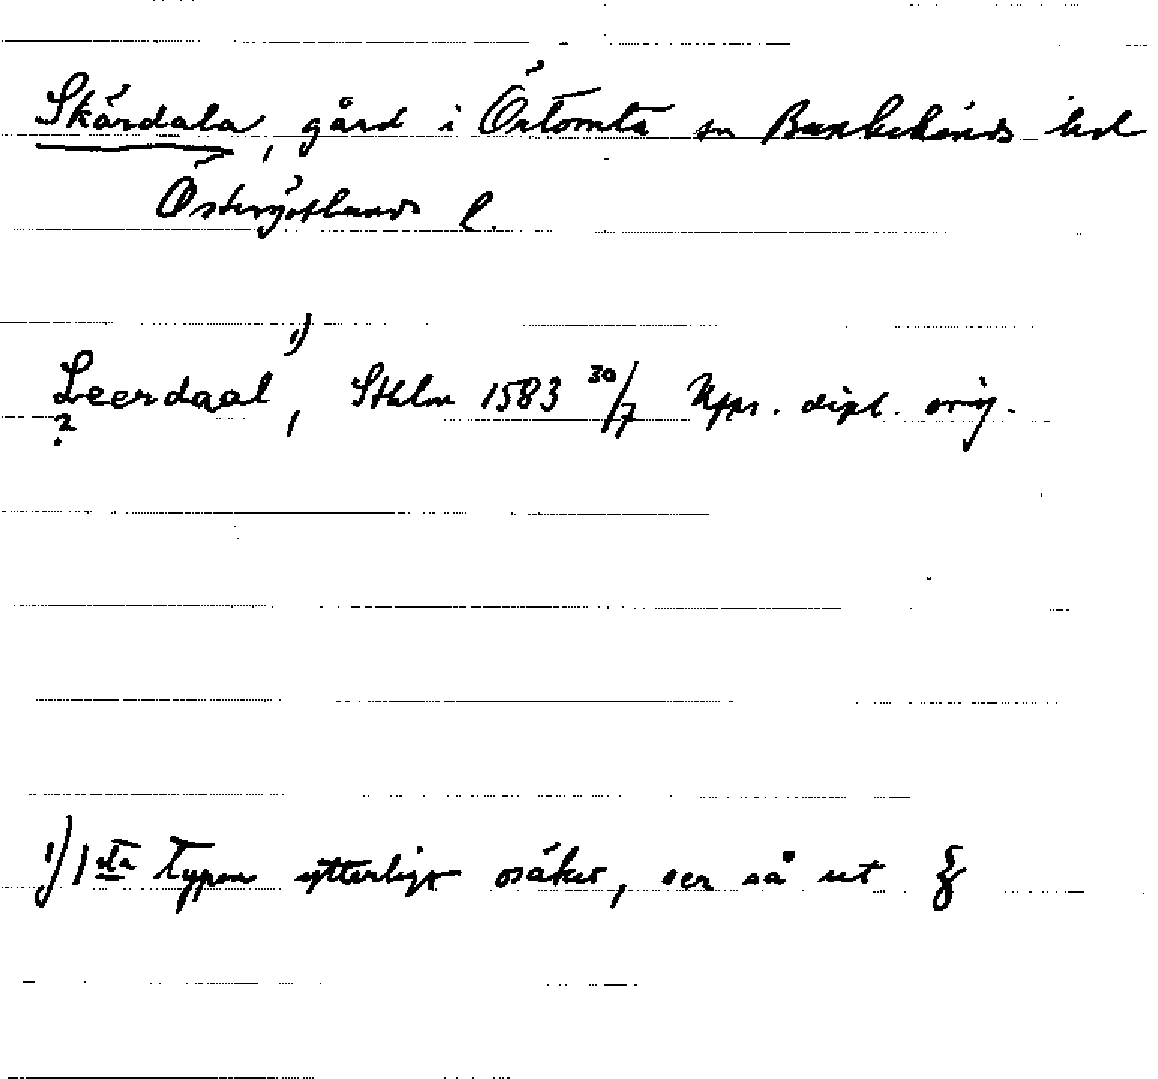 Skärdala, gård i Örtomta sn Bankekinds hd
Östergötlands l.
1)
Leerdaal, Sthlm 1583 30/7 Upps. dipl. orig.
?
1) 1sta Typen ytterligt osäker, ser så ut